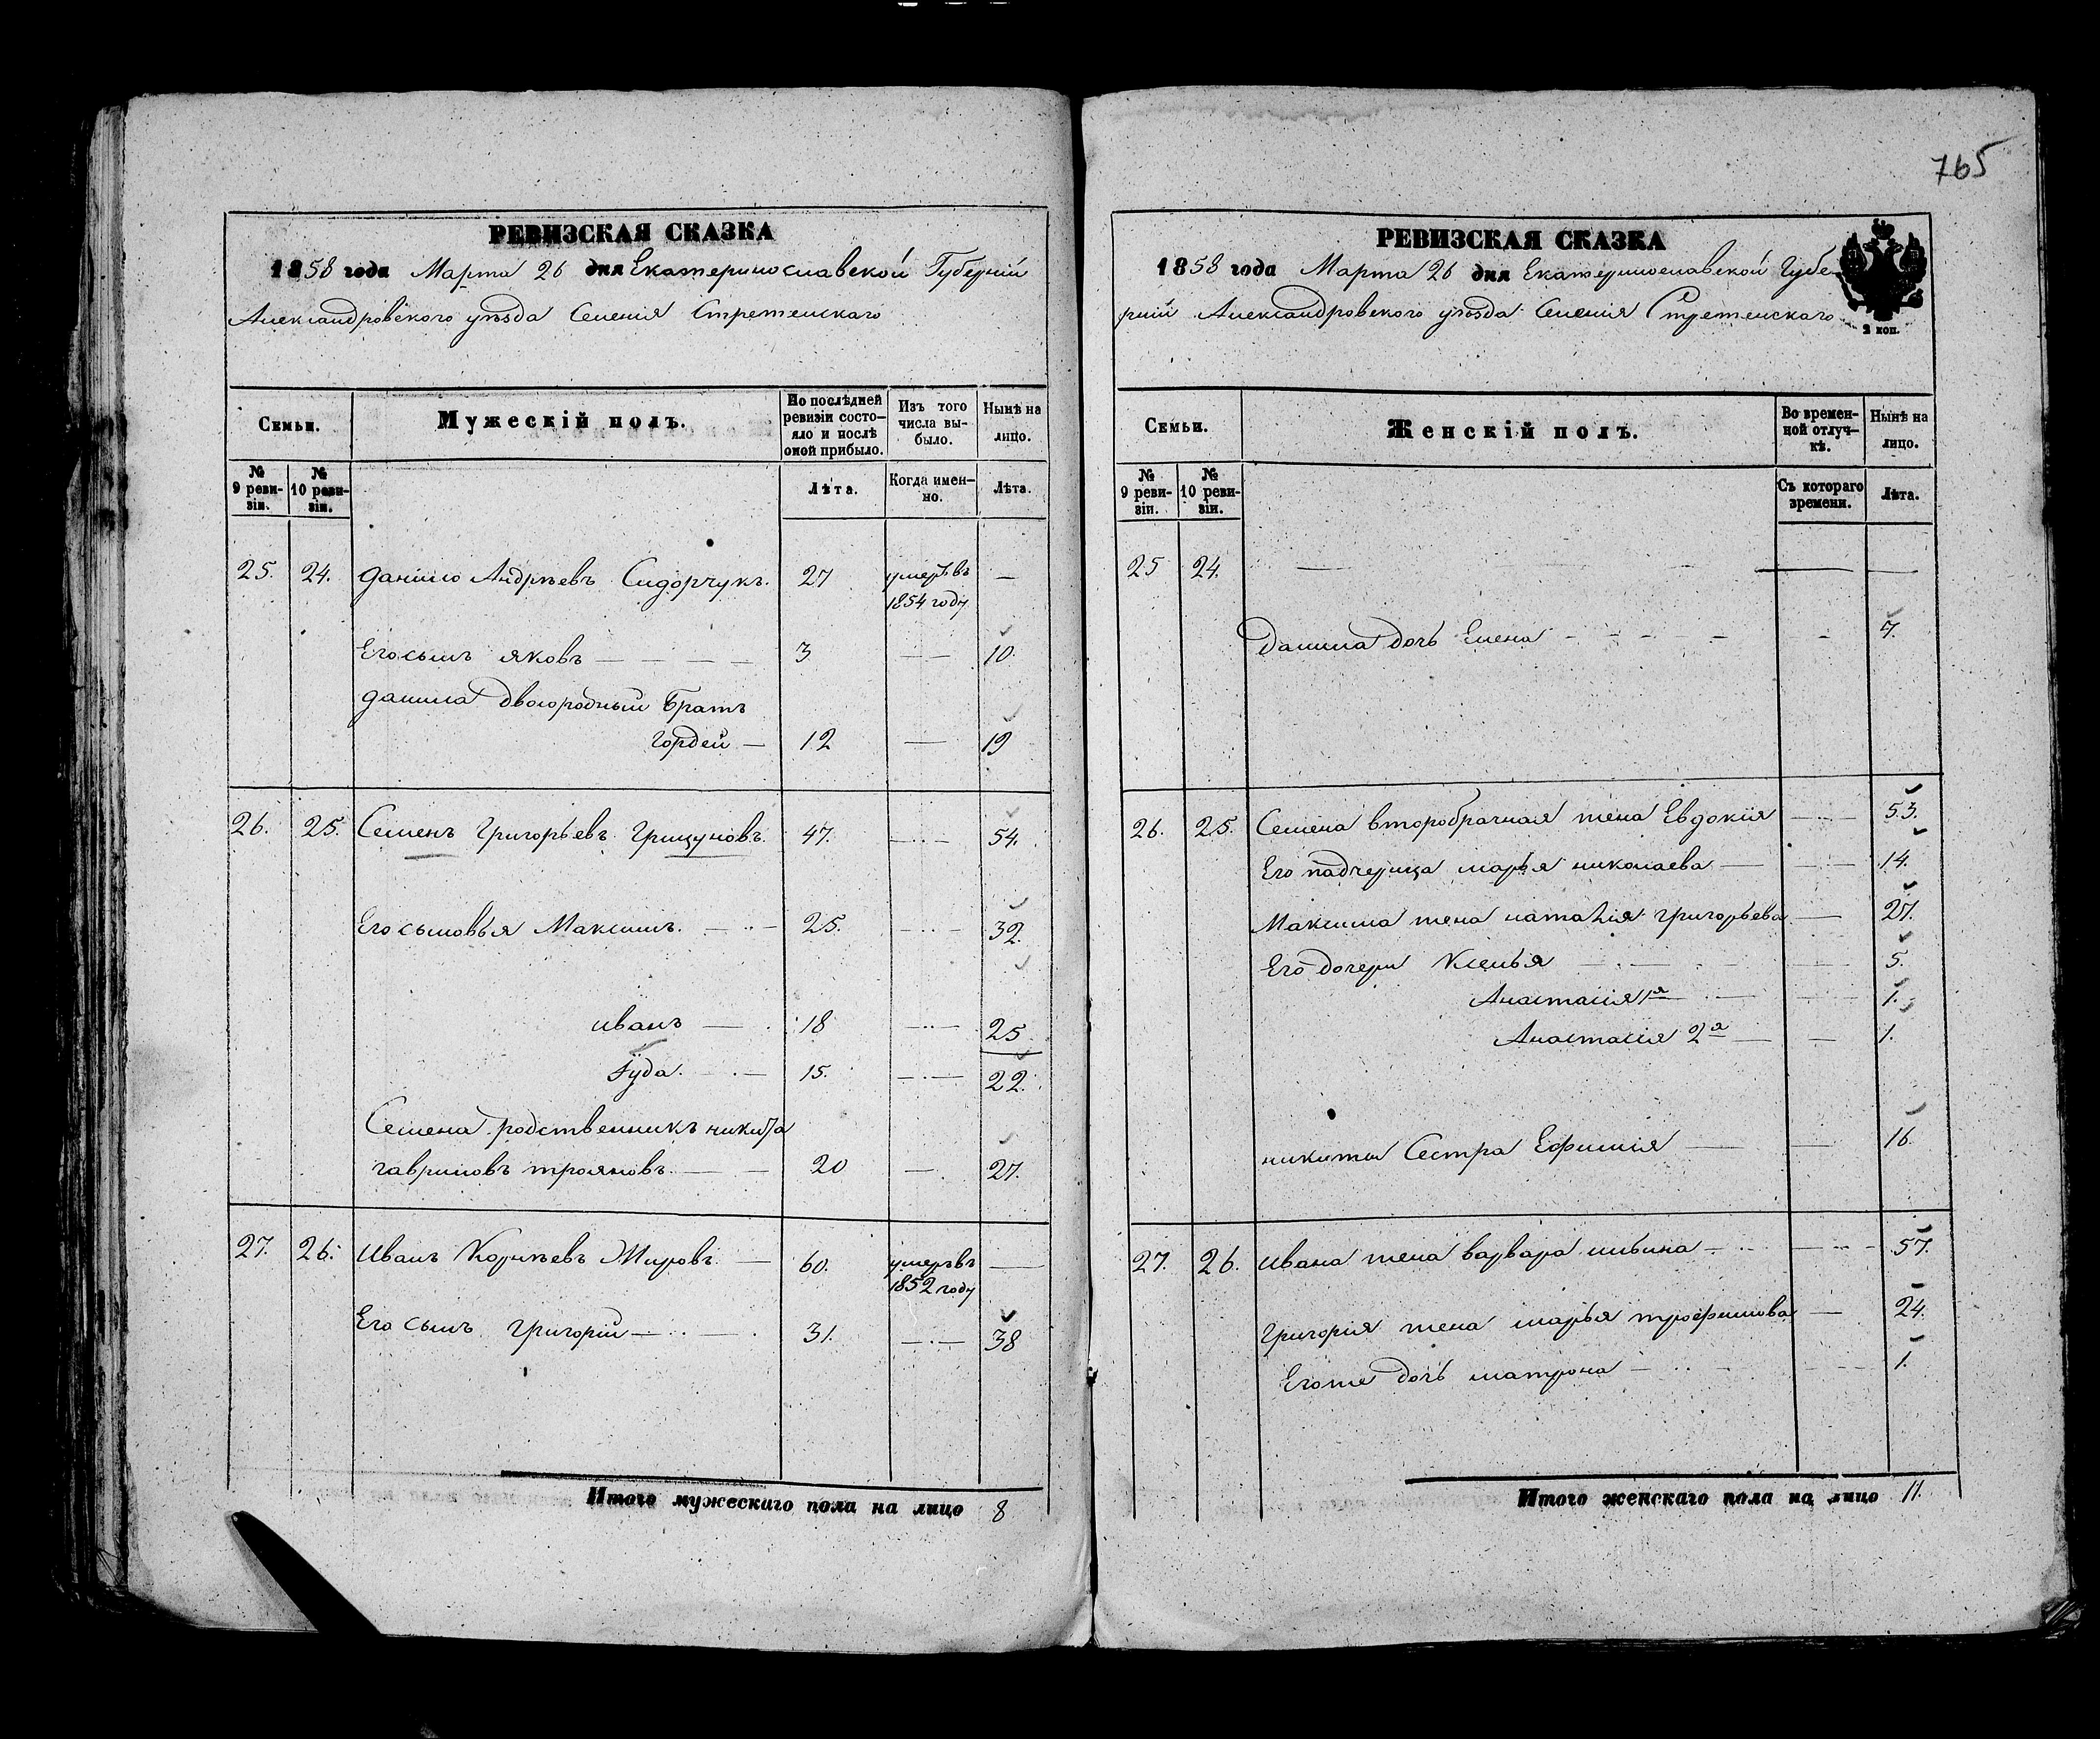 765
РЕВИЗСКАЯ СКАЗКА
1858 года Марта 26 дня Екатеринославской Губерніи
Александровского уѣзда Селенія Стретенскаго
Семьи.
Мужескій полъ.
По послѣдней ревизіи состояло и послѣ оной прибыло.
Изъ того числа выбыло.
Нынѣ на лицо.
№ 9 ревизіи.
№ 10 ревизіи.
Лѣта.
Когда именно.
Лѣта.
25. 24. Данило Андрѣевъ Сидорчукъ. 27 умеръ въ 1854 году —
Его сынъ яковъ — — — — 3 — — 10.
Данила двоюродный Братъ
Гордей — 12 — 19
26. 25. Семенъ Григорьевъ Грицуновъ. 47. — 54.
Его сыновья Максимъ. — 25. — 32.
иванъ — 18 — 25
Іуда. — 15. — 22.
Семена родственникъ никита
гавриловъ трояновъ — 20 — 27.
27. 26. Иванъ Корнѣевъ Жировъ — 60. умеръ въ 1852 году —
Его сынъ Григорій — 31. — 38
Итого мужескаго пола на лицо 8
РЕВИЗСКАЯ СКАЗКА
1858 года Марта 26 дня Екатеринославской Губе-
рніи Александровского уѣзда Селенія Стретенскаго
2 коп.
Семьи.
Женскій полъ.
Во временной отлучкѣ.
Нынѣ на лицо.
№ 9 ревизіи.
№ 10 ревизіи.
Съ котораго времени.
Лѣта.
25 24. — — — —
Данила дочь Елена — — 7.
26. 25. Семена второбрачная жена Евдокія — 53.
Его падчерица марья николаева — 14.
Максима жена наталія григорьева — 27.
Его дочери Ксенья — 5.
Анастасія 1я — 1.
Анастасія 2я — 1.
никиты Сестра Ефимія — 16.
27. 26. Ивана жена варвара — 57.
Григорія жена марья трофимова — 24.
Его же дочь матрона — 1.
Итого женскаго пола на лицо 11.